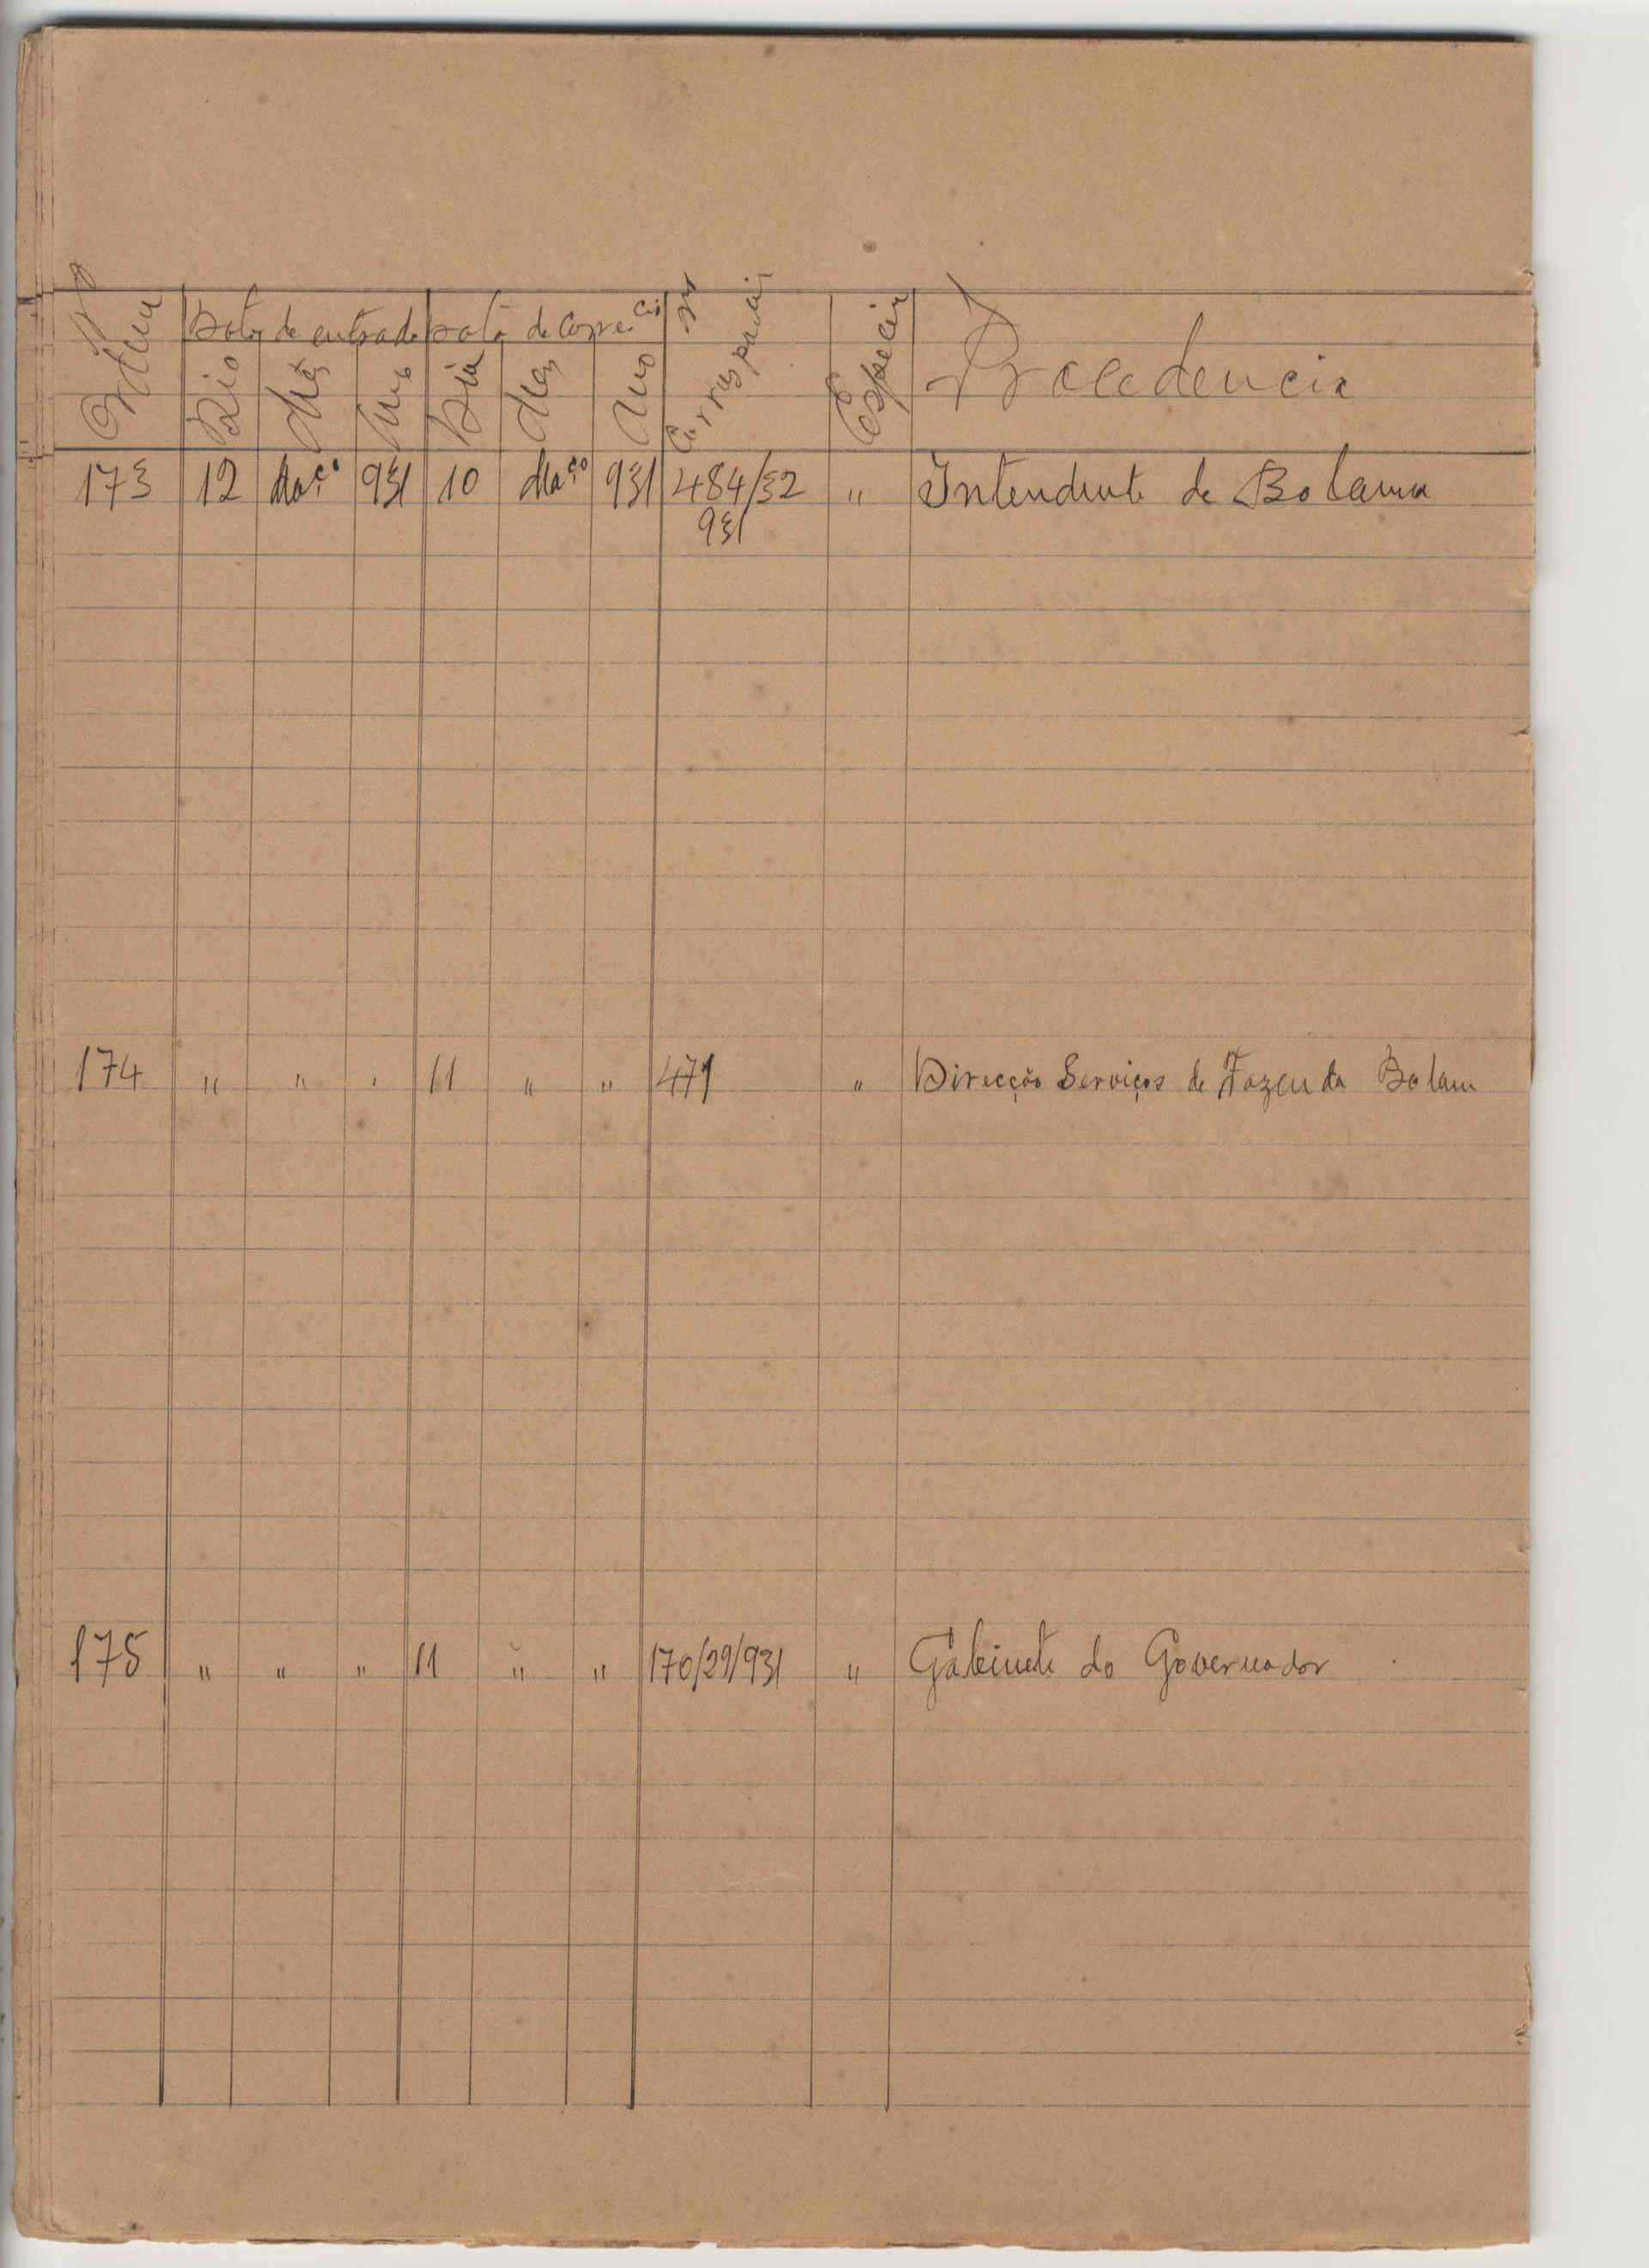 Nº Ordem
Data de entrada Data de Corre cia
Dia Mês Ano Dia Mes Ano Nº Correspencia Especie Procedencia
173 12 Março 931 10 Março 931 484/32 " Intendente de Bolama
931
174 " " " 11 " " 471 " Direcção Serviços de Fazenda Bolam
175 " " " 11 " " 170/29/931 " Gabinete do Governador